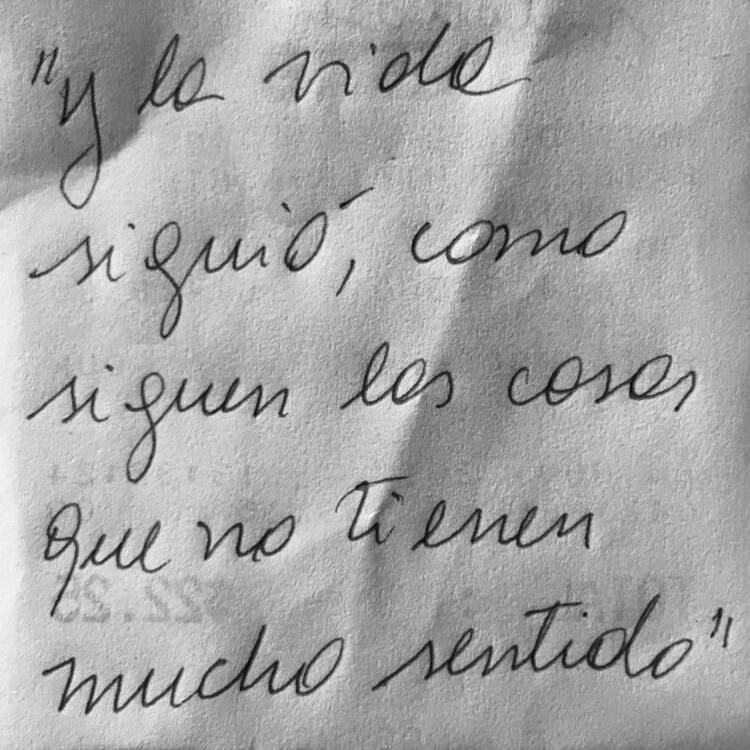 "y la vida
siguió, como
siguen las cosas
que no tienen
mucho sentido"